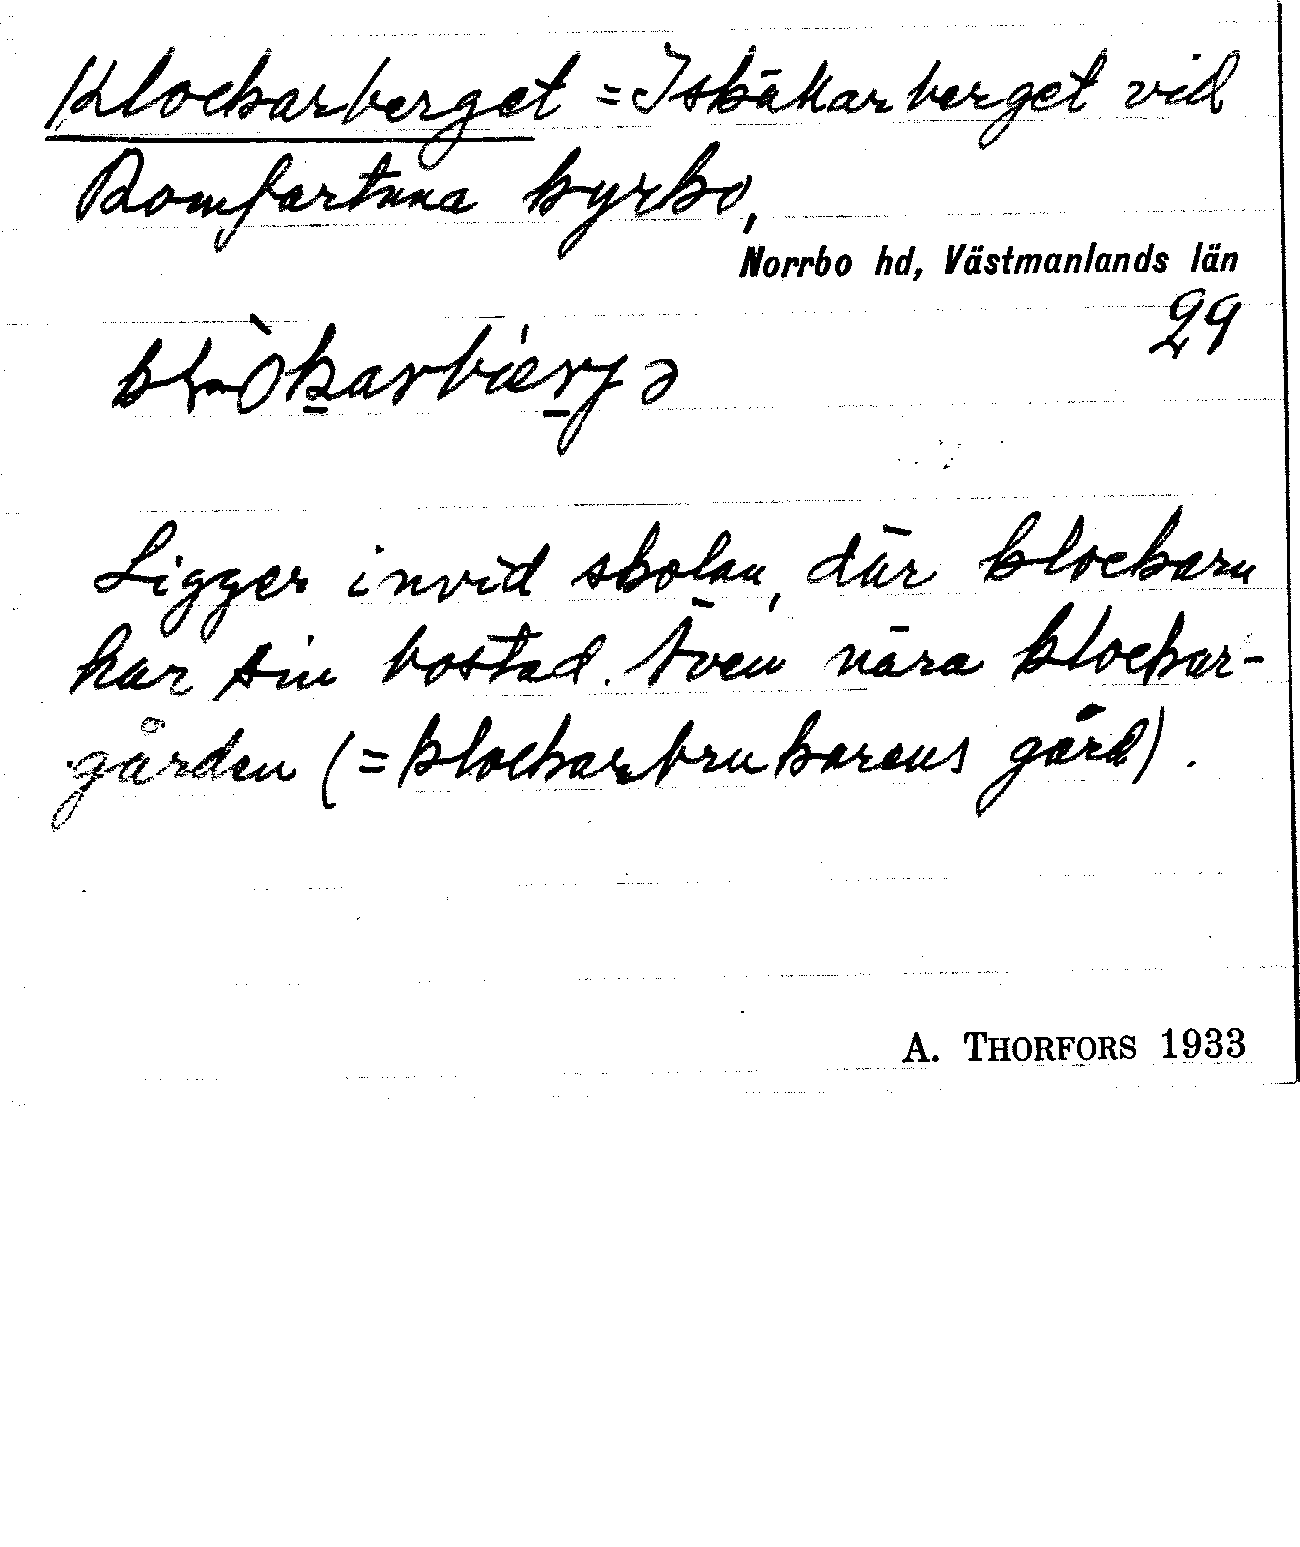 Klockarberget = Iskällarberget vid
Romfartuna kyrko,
Norrbo hd, Västmanlands län
29
Ligger invid skolan, där klockarn
har sin bostad. Även nära klockar-
gården (= klockarbrukarens gård).
A. THORFORS 1933